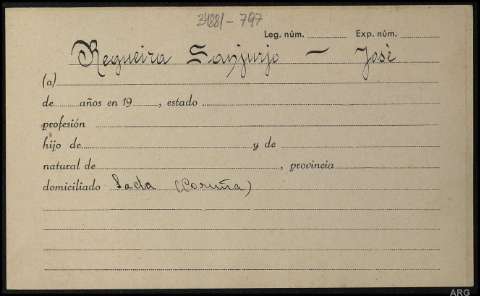 24881-797
Leg. núm. Exp. núm.
Regueira Sanjurjo - José
(a)
de años en 19 , estado
profesión
hijo de y de
natural de , provincia
domiciliado Sada (Coruña)
ARG